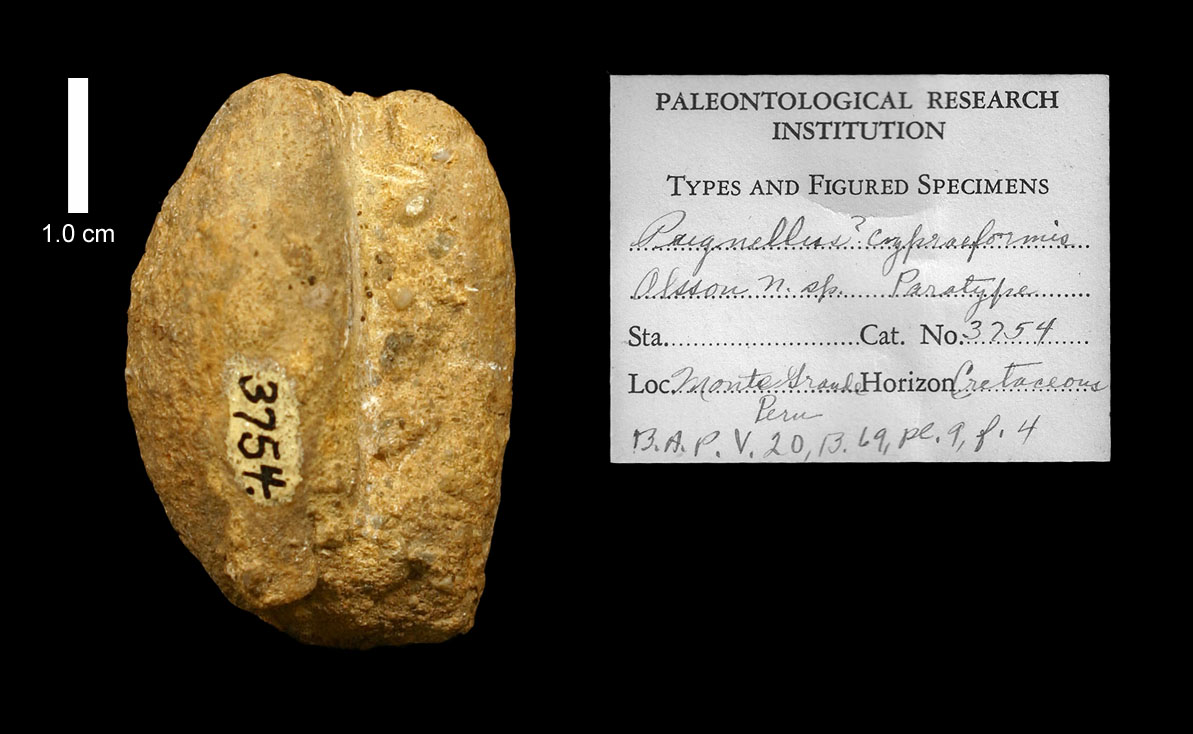 1.0 cm
3754.
PALEONTOLOGICAL RESEARCH
INSTITUTION
TYPES AND FIGURED SPECIMENS
Pugnellus? cypraeformis
Olsson n. sp. Paratype
Sta. Cat. No. 3754
Loc. Monte Grande Horizon Cretaceous
Peru
B.A.P. V. 20, B. 69, pl. 9, f. 4